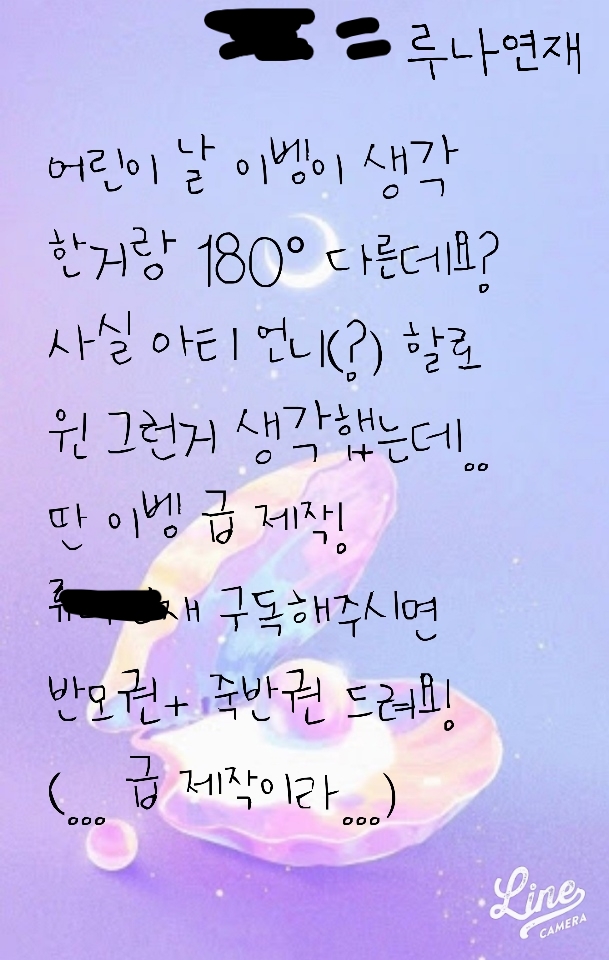 = 루나연재
어린이 날 이벵이 생각
한거랑 180° 다른데요?
사실 아티 언니(?) 할로
윈 그런거 생각했는데..
딴 이벵 급 제작!
재 구독해주시면
반모권+ 죽반권 드려요!
(... 급 제작이라...)
Line
CAMERA